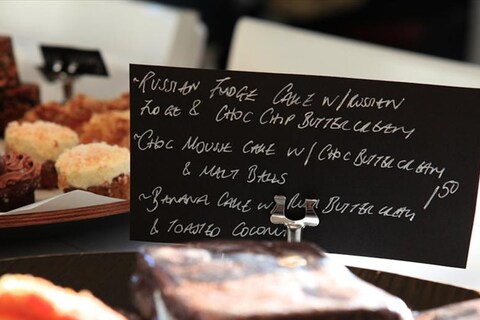 ~RUSSIAN FUDGE CAKE W/RUSSIAN
FUDGE & CHOC CHIP BUTTERCREAM
~CHOC MOUSSE CAKE W/CHOC BUTTERCREAM
& MALT BALLS
1.50
~BANANA CAKE W/ BUTTERCREAM
& TOASTED COCONUT